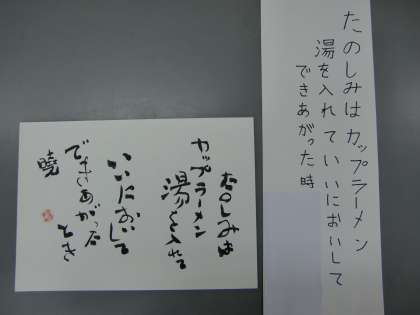 たのしみはカップラーメン
湯を入れていいにおいして
できあがった時
たのしみは
カップラーメン
湯を入れて
いいにおいして
できあがった
とき
曉